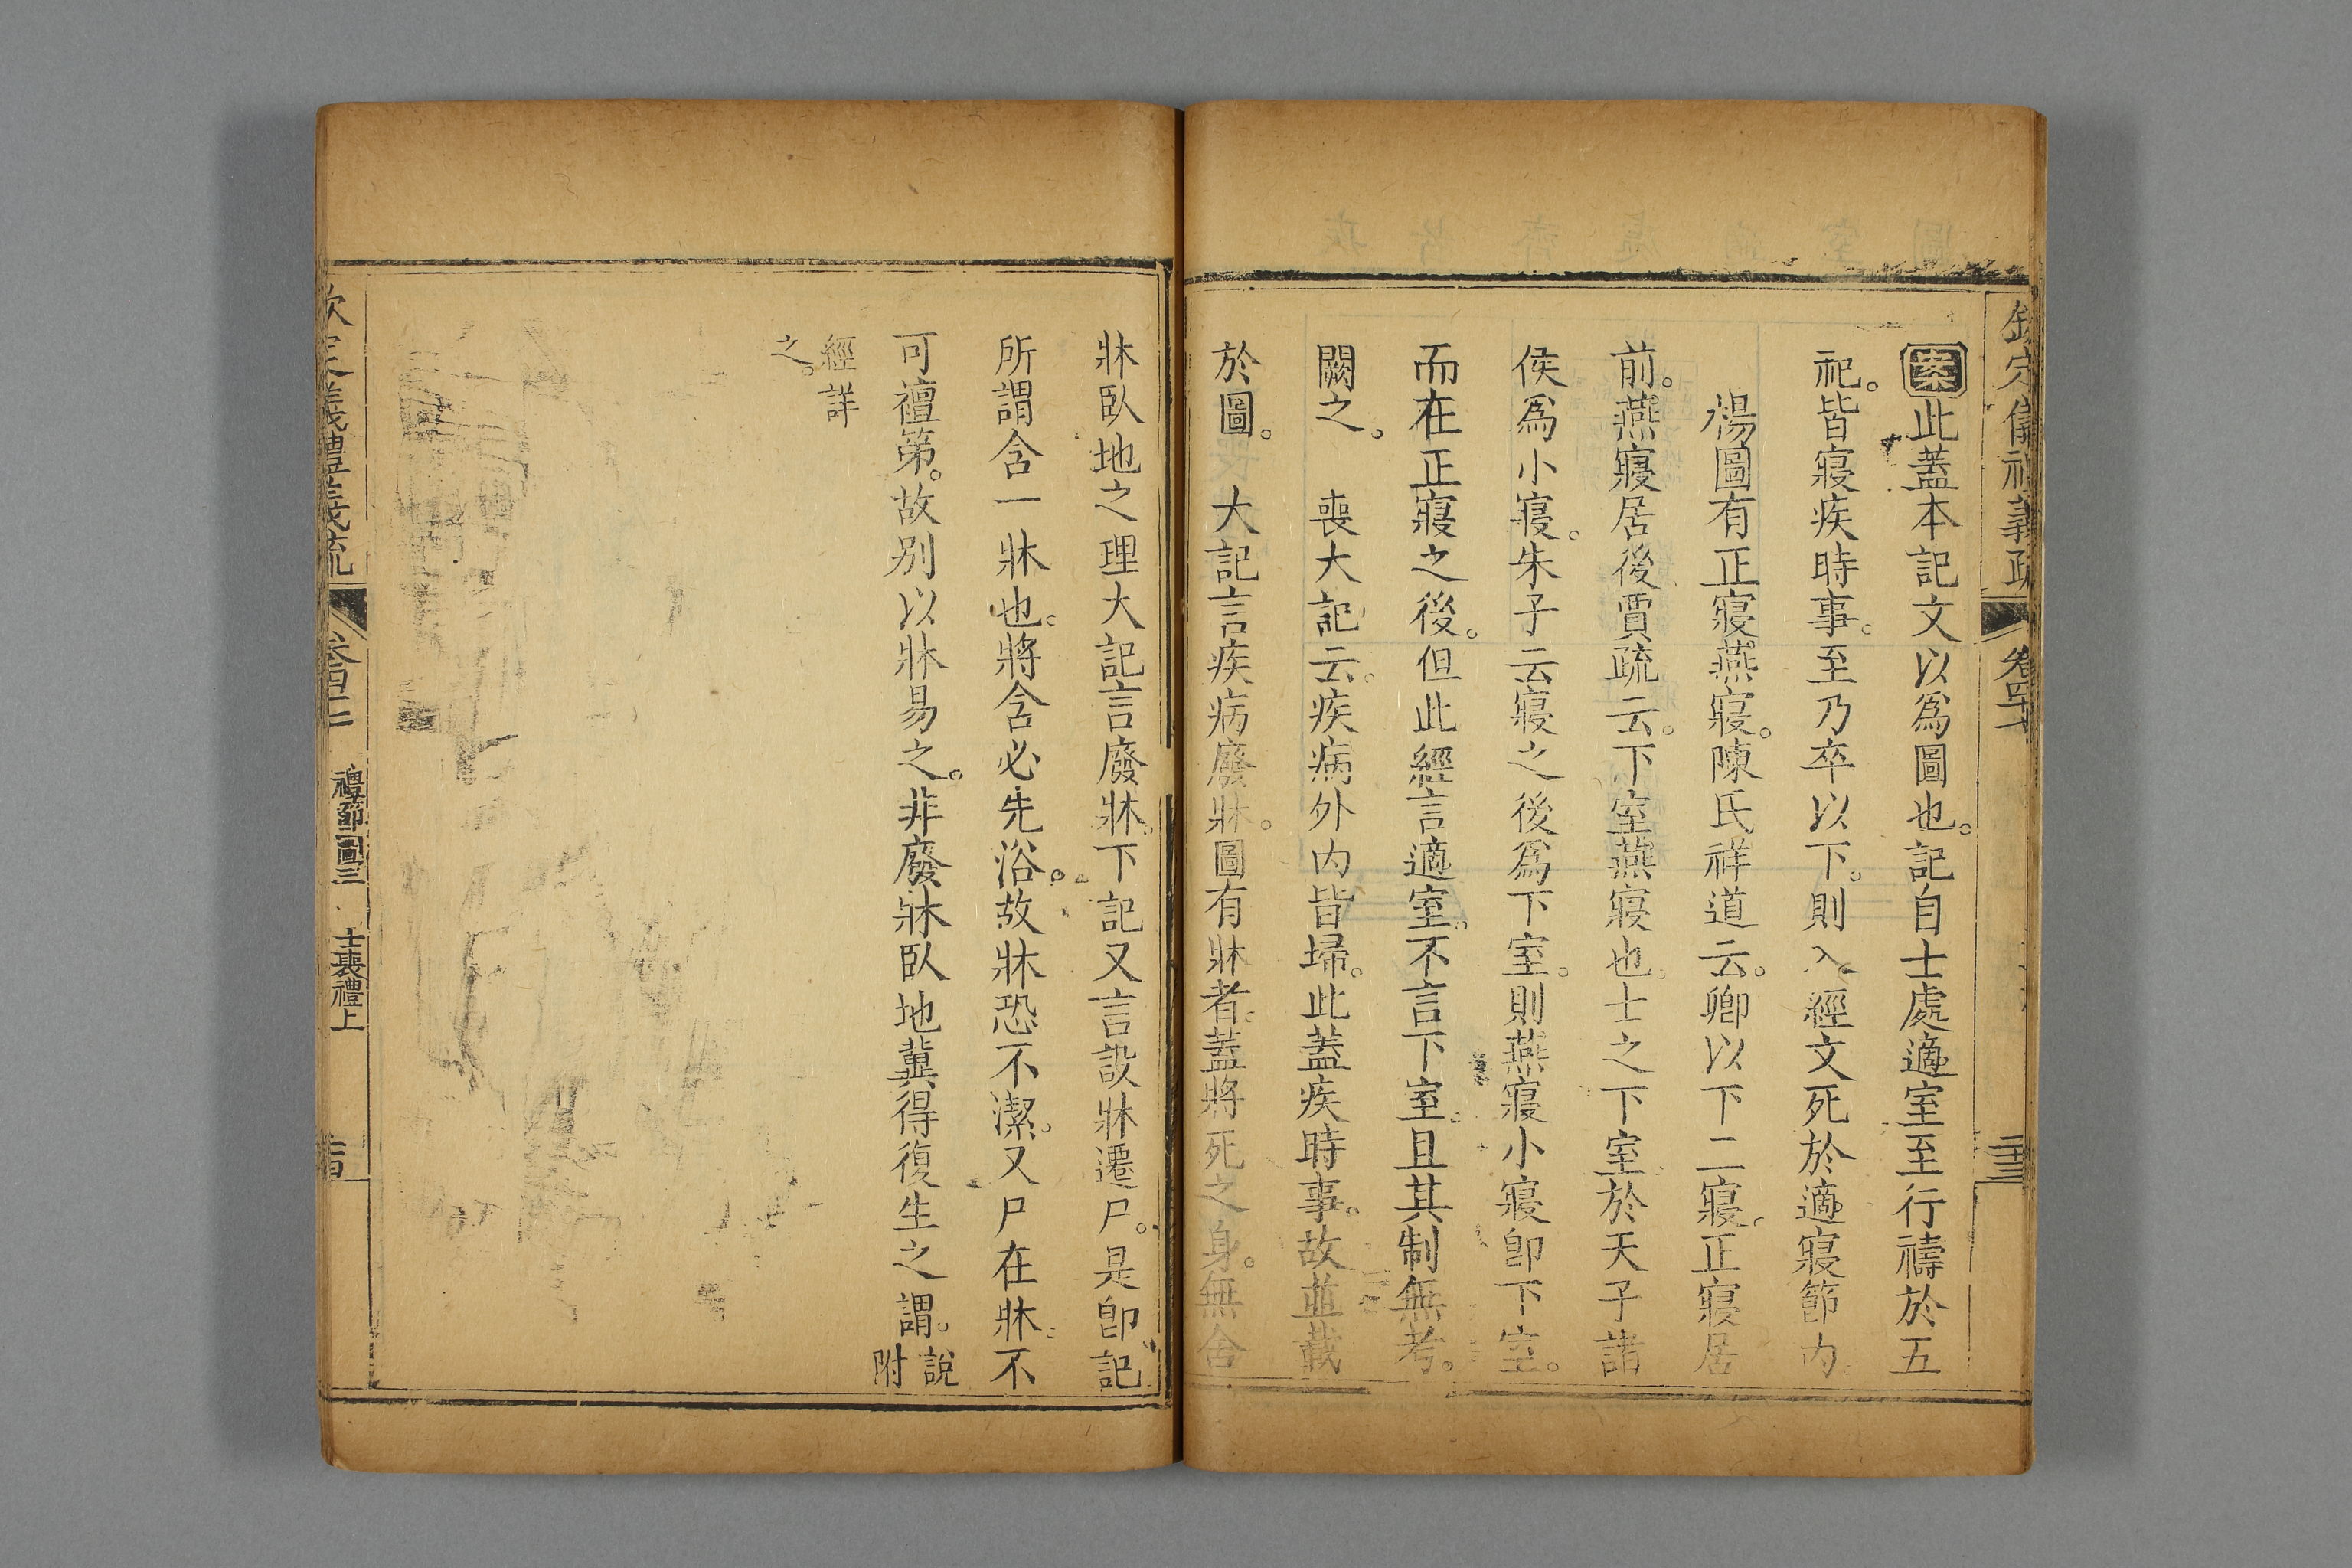 欽定儀禮義疏 卷四十 三三
案此蓋本記文以爲圖也。記自士處適室至行禱於五
祀。皆寢疾時事。至乃卒以下。則入經文死於適寢節内。
楊圖有正寢燕寢。陳氏祥道云。卿以下二寢。正寢居
前。燕寢居後賈疏云。下室燕寢也。士之下室於天子諸
侯爲小寢。朱子云寢之後爲下室。則燕寢小寢卽下室。
而在正寢之後。但此經言適室。不言下室。且其制無考。
闕之。 喪大記云。疾病外内皆埽。此蓋疾時事。故並載
於圖。 大記言疾病廢牀。圖有牀者。蓋將死之身。無舍
牀臥地之理大記言廢牀。下記又言設牀遷尸。是卽記
所謂含一牀也。將含必先浴。故牀恐不潔。又尸在牀。不
可襢笫。故别以牀易之。非廢牀臥地冀得復生之謂。說附
經詳
之。
欽定義禮義疏 卷四二 禮節圖三 士喪禮上